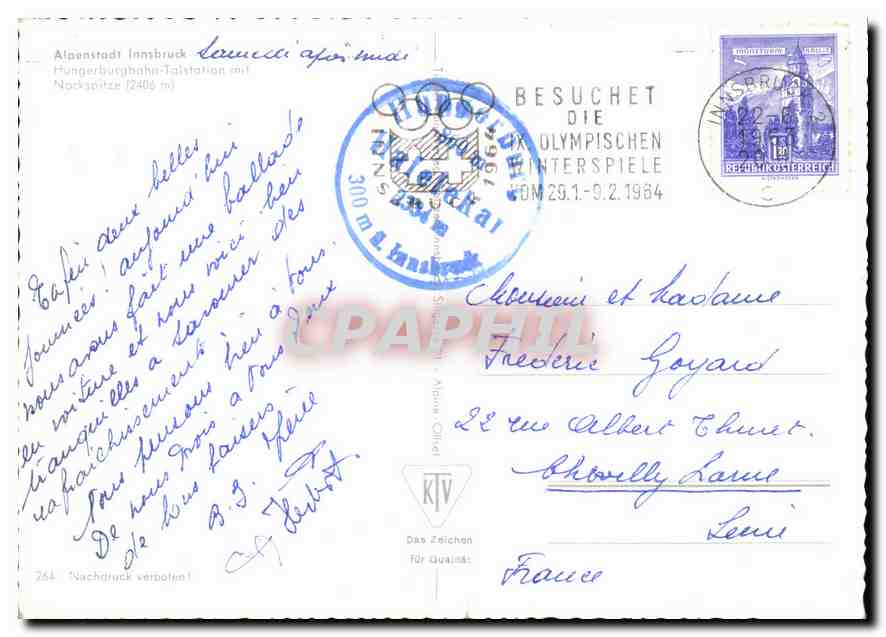 Alpenstadt Innsbruck
Hungerburgbahn-Talstation mit
Nockspitze (2406 m)
Samedi après midi
Enfin deux belles
journées! aujourd'hui
nous avons fait une ballade
en voiture et nous voici bien
tranquilles à savourer des
rafraîchissements
Nous pensons bien à vous.
De nous trois à vous deux
de bons baisers
Herbert.
264 Nachdruck verboten!
INNSBRUCK 1964
BESUCHET
DIE
IX. OLYMPISCHEN
WINTERSPIELE
VOM 29.1.-9.2.1964
Hafelekar
2334 m
300 m ü. Innsbruck
INNSBRUCK 2
22-6
1963
MÜNZTURM HALL I.T.
REPUBLIK ÖSTERREICH
Alpine-Offset
KTV
Das Zeichen
für Qualität
CPAPHIL
Monsieur et Madame
Frédéric Goyard
22 rue Albert Thuret.
Chevilly Larue
Seine
France